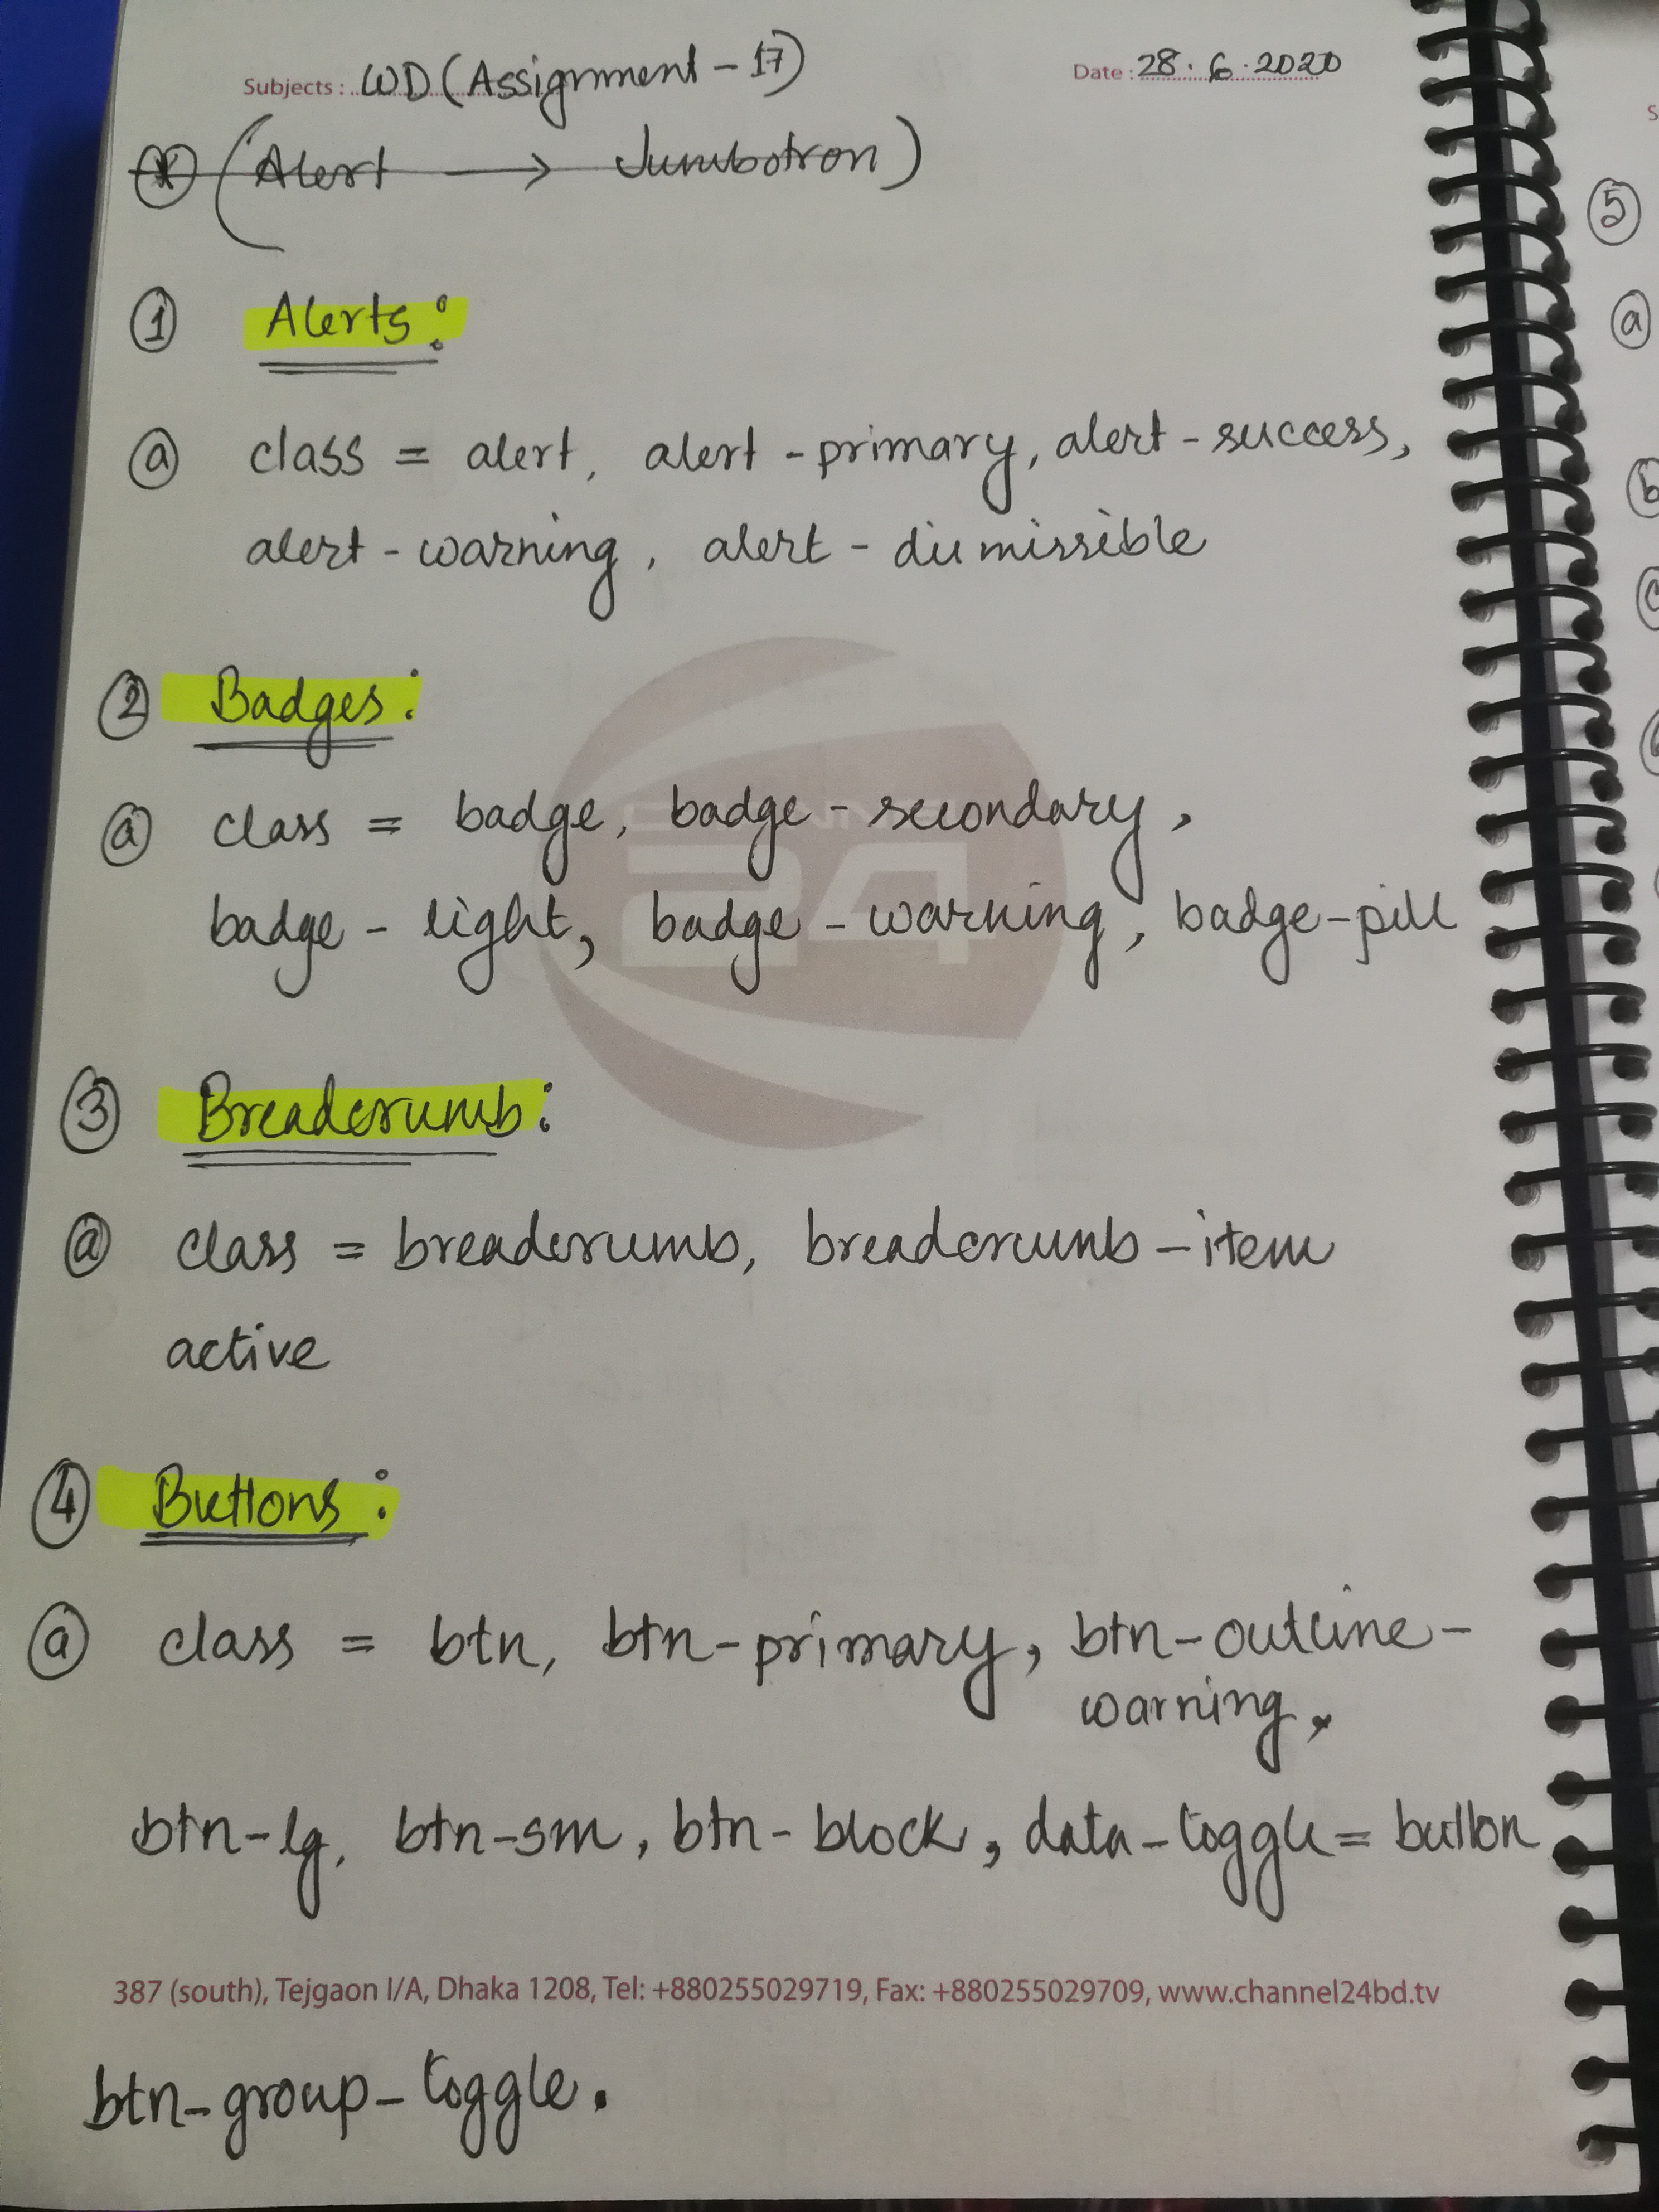 Subjects : WD (Assignment - 17) Date : 28. 6. 2020
* (Alert → Jumbotron)
1 Alerts:
a class = alert, alert - primary, alert - success,
alert - warning, alert - dismissible
2 Badges:
a class = badge, badge - secondary,
badge - light, badge - warning, badge-pill
24
3 Breadcrumb:
a class = breadcrumb, breadcrumb - item
active
4 Buttons:
a class = btn, btn-primary, btn-outline-
warning,
btn-lg, btn-sm, btn-block, data-toggle = button
387 (south), Tejgaon I/A, Dhaka 1208, Tel: +880255029719, Fax: +880255029709, www.channel24bd.tv
btn-group-toggle.
5
a
b
c